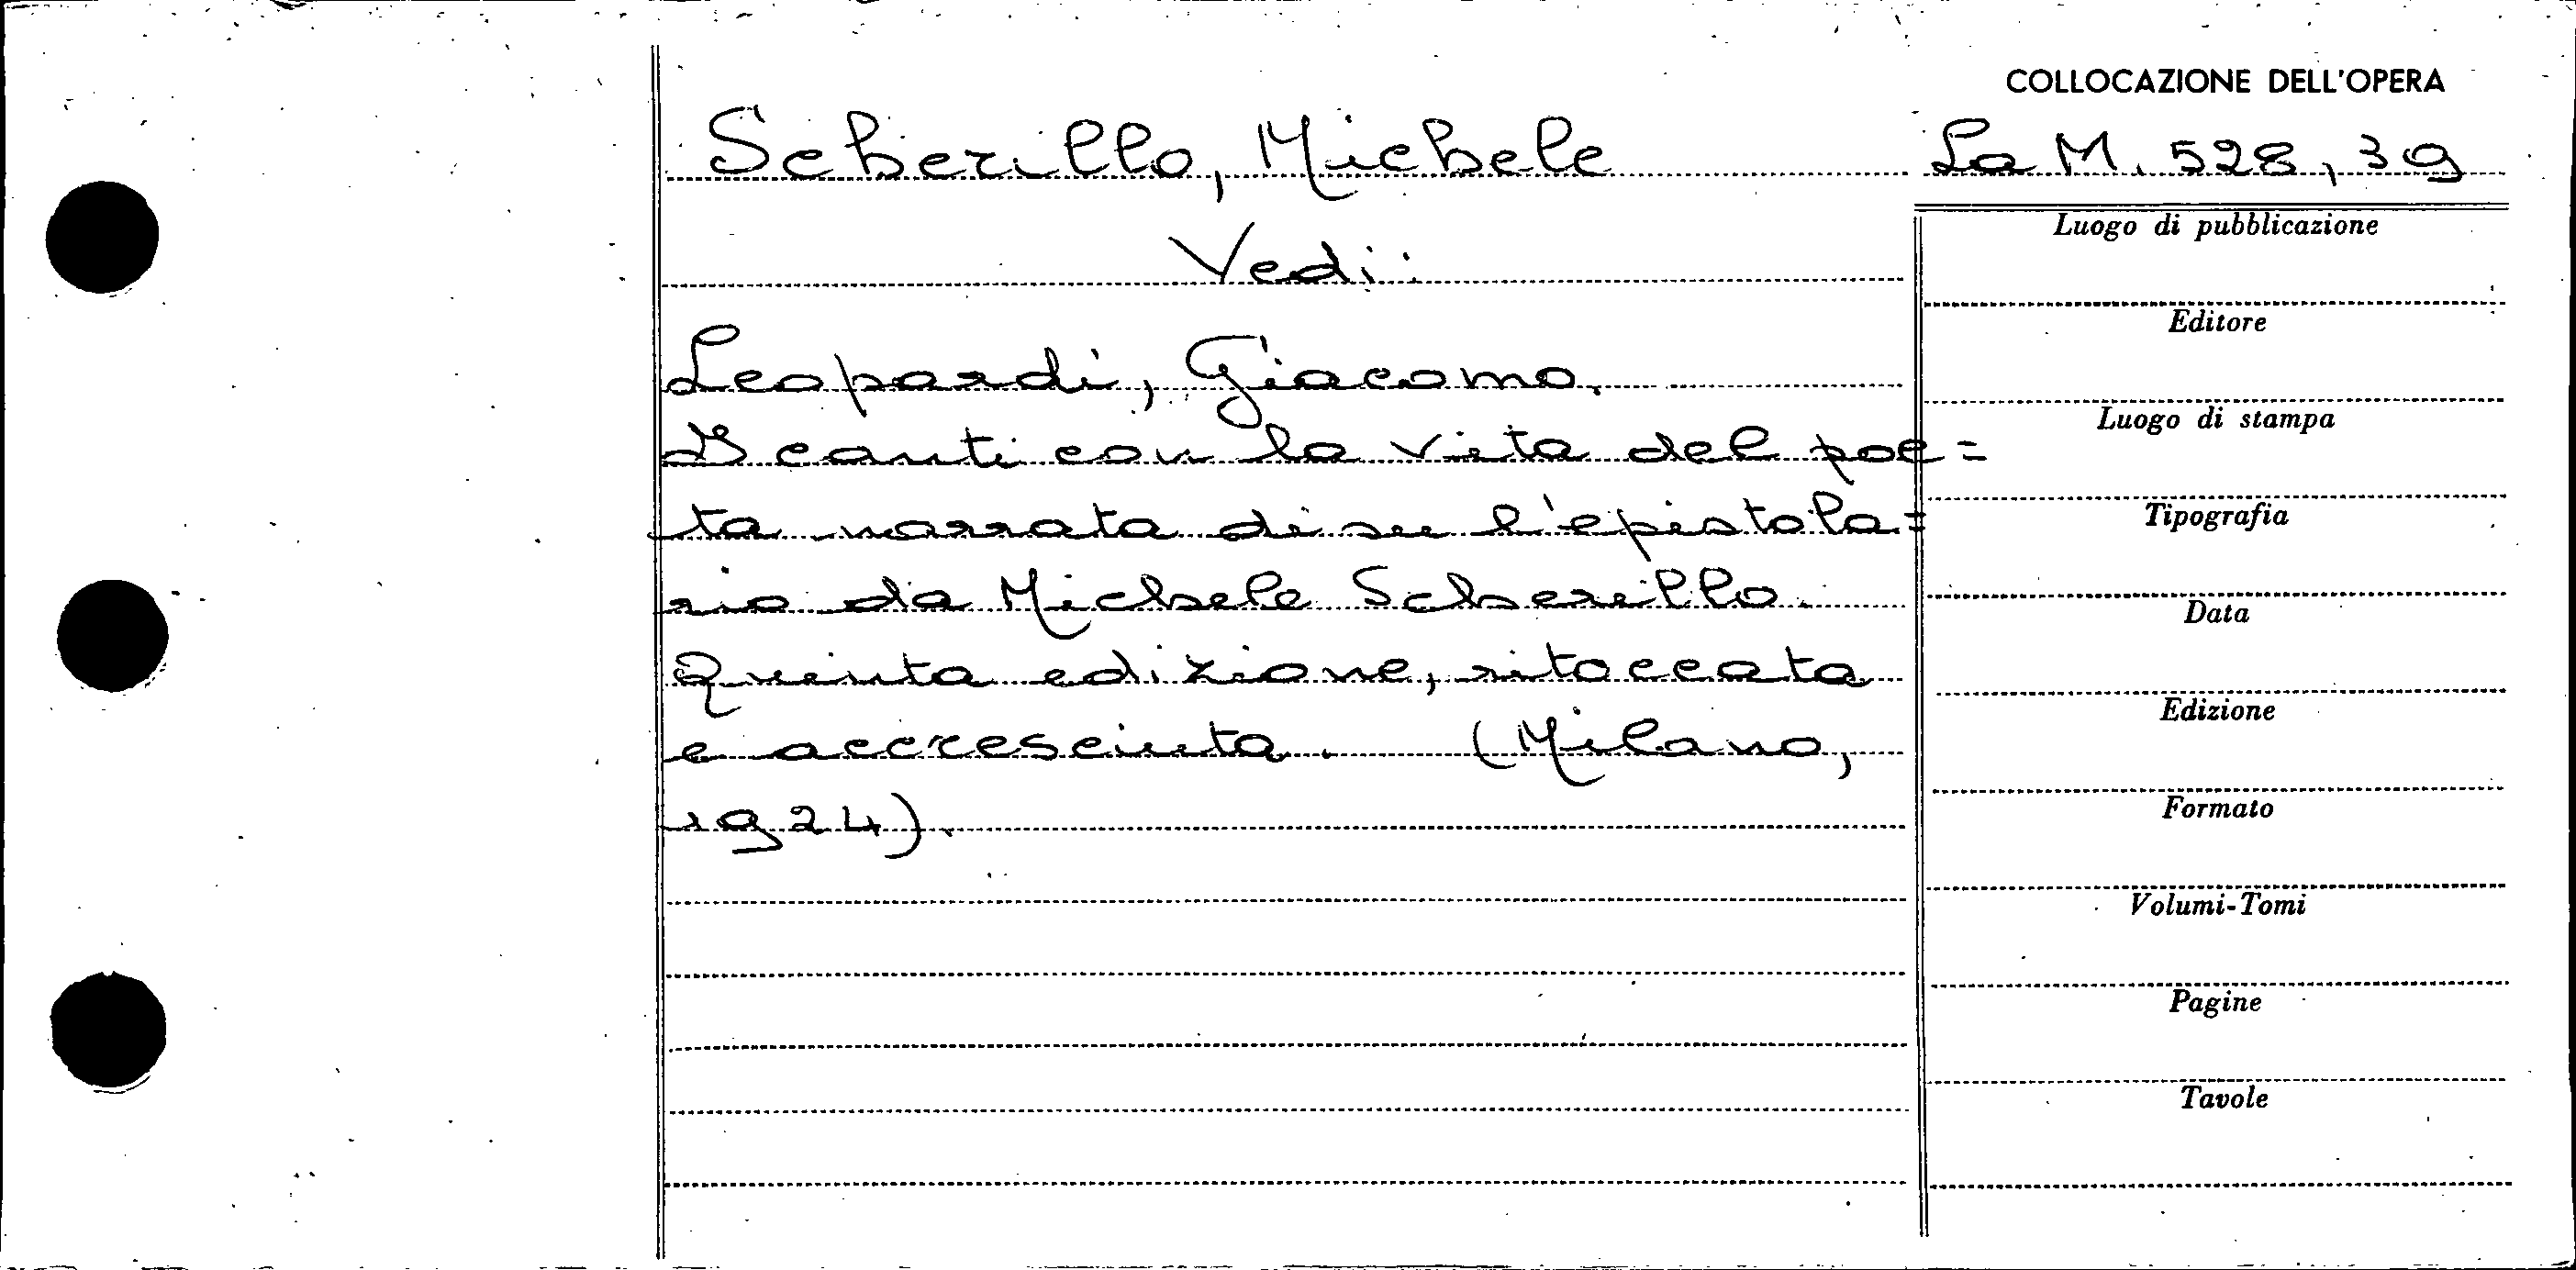 COLLOCAZIONE DELL'OPERA
Scherillo, Michele
La M. 528, 39
Vedi:
Leopardi, Giacomo.
I canti con la vita del poe=
ta narrata di su l'epistola=
rio da Michele Scherillo.
Quinta edizione, ritoccata
e accresciuta. (Milano,
1924).
Luogo di pubblicazione
Editore
Luogo di stampa
Tipografia
Data
Edizione
Formato
Volumi-Tomi
Pagine
Tavole